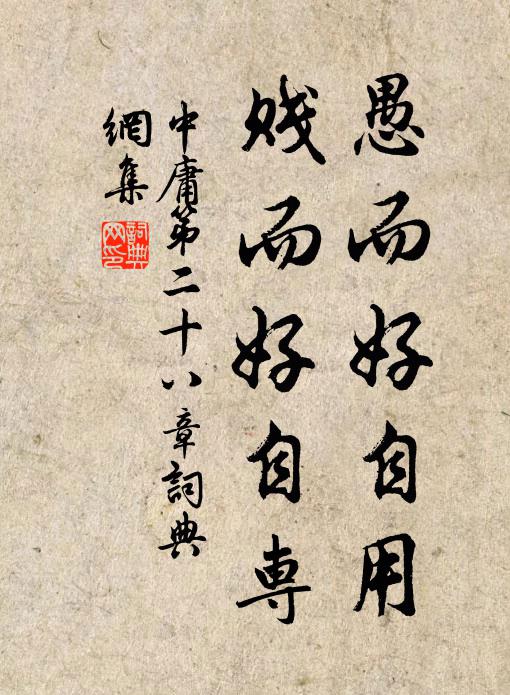 愚而好自用
賤而好自専
中庸第二十八章詞典
網集
詞典
网印